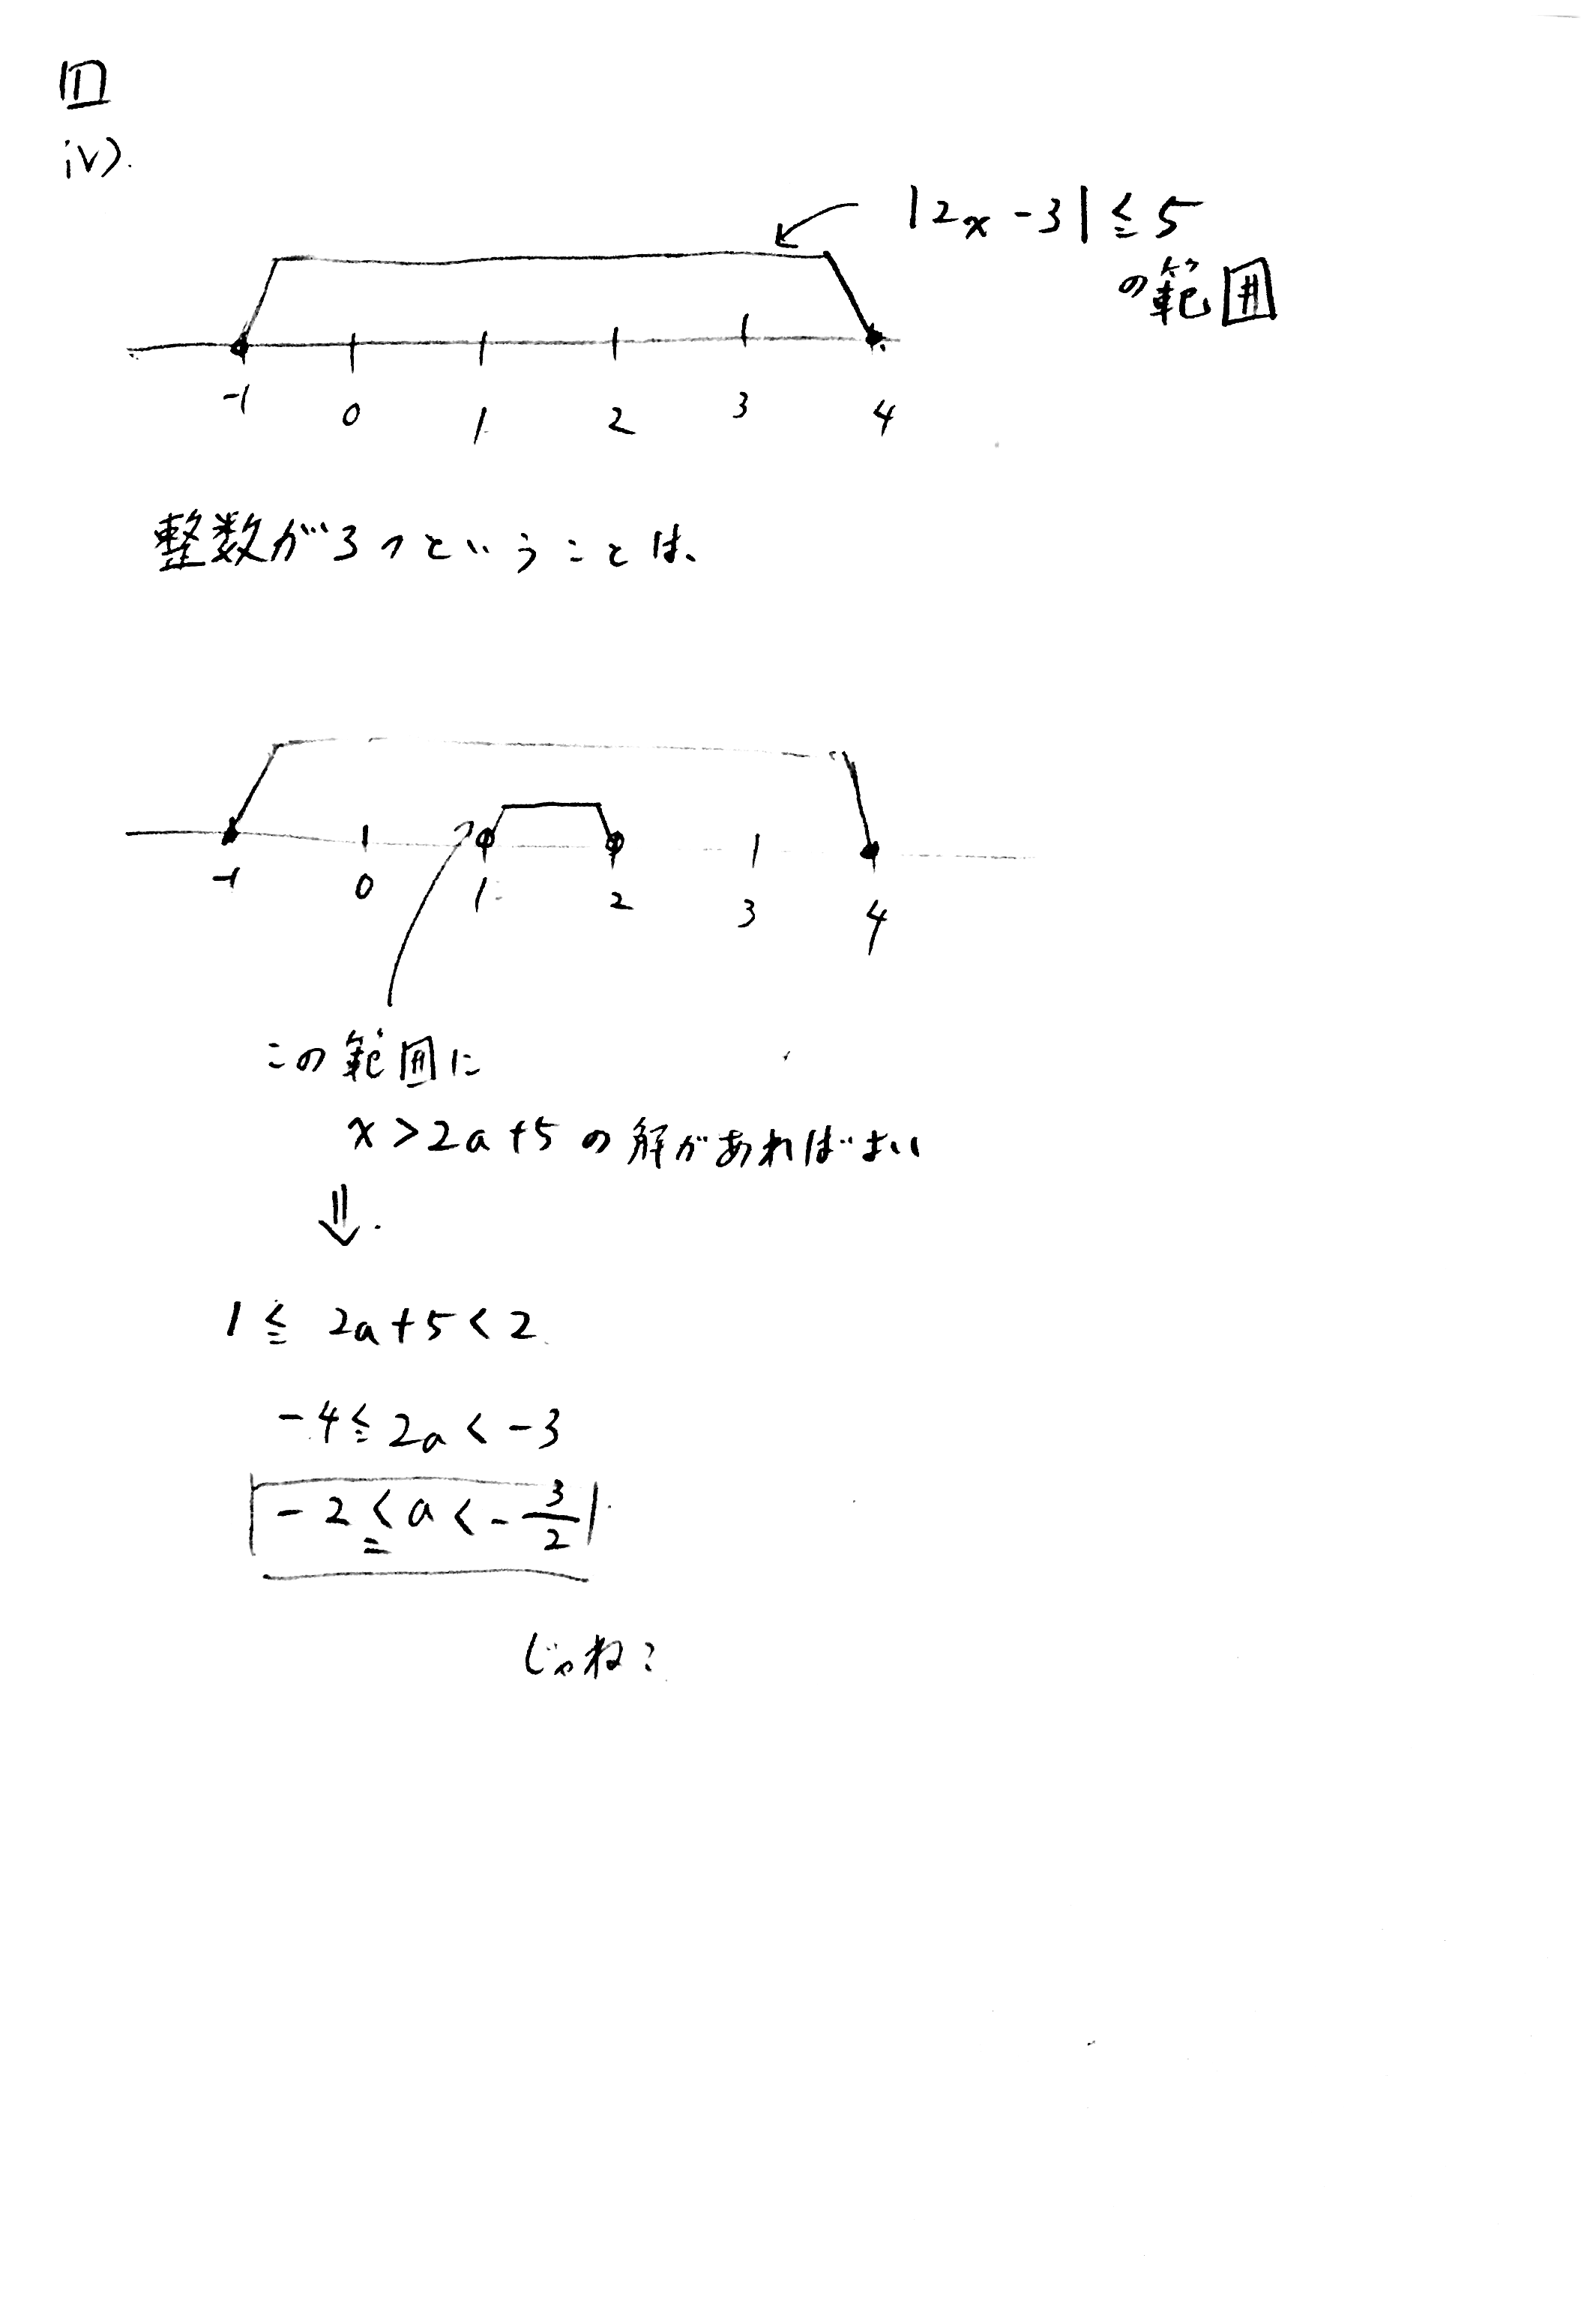 1
iv).
|2x-3|≦5
の範囲
-1 0 1 2 3 4
整数が3つということは、
-1 0 1 2 3 4
この範囲に
x>2a+5の解があればよい
⇓
1≦2a+5<2
-4≦2a<-3
-2≦a<-3/2
じゃね?